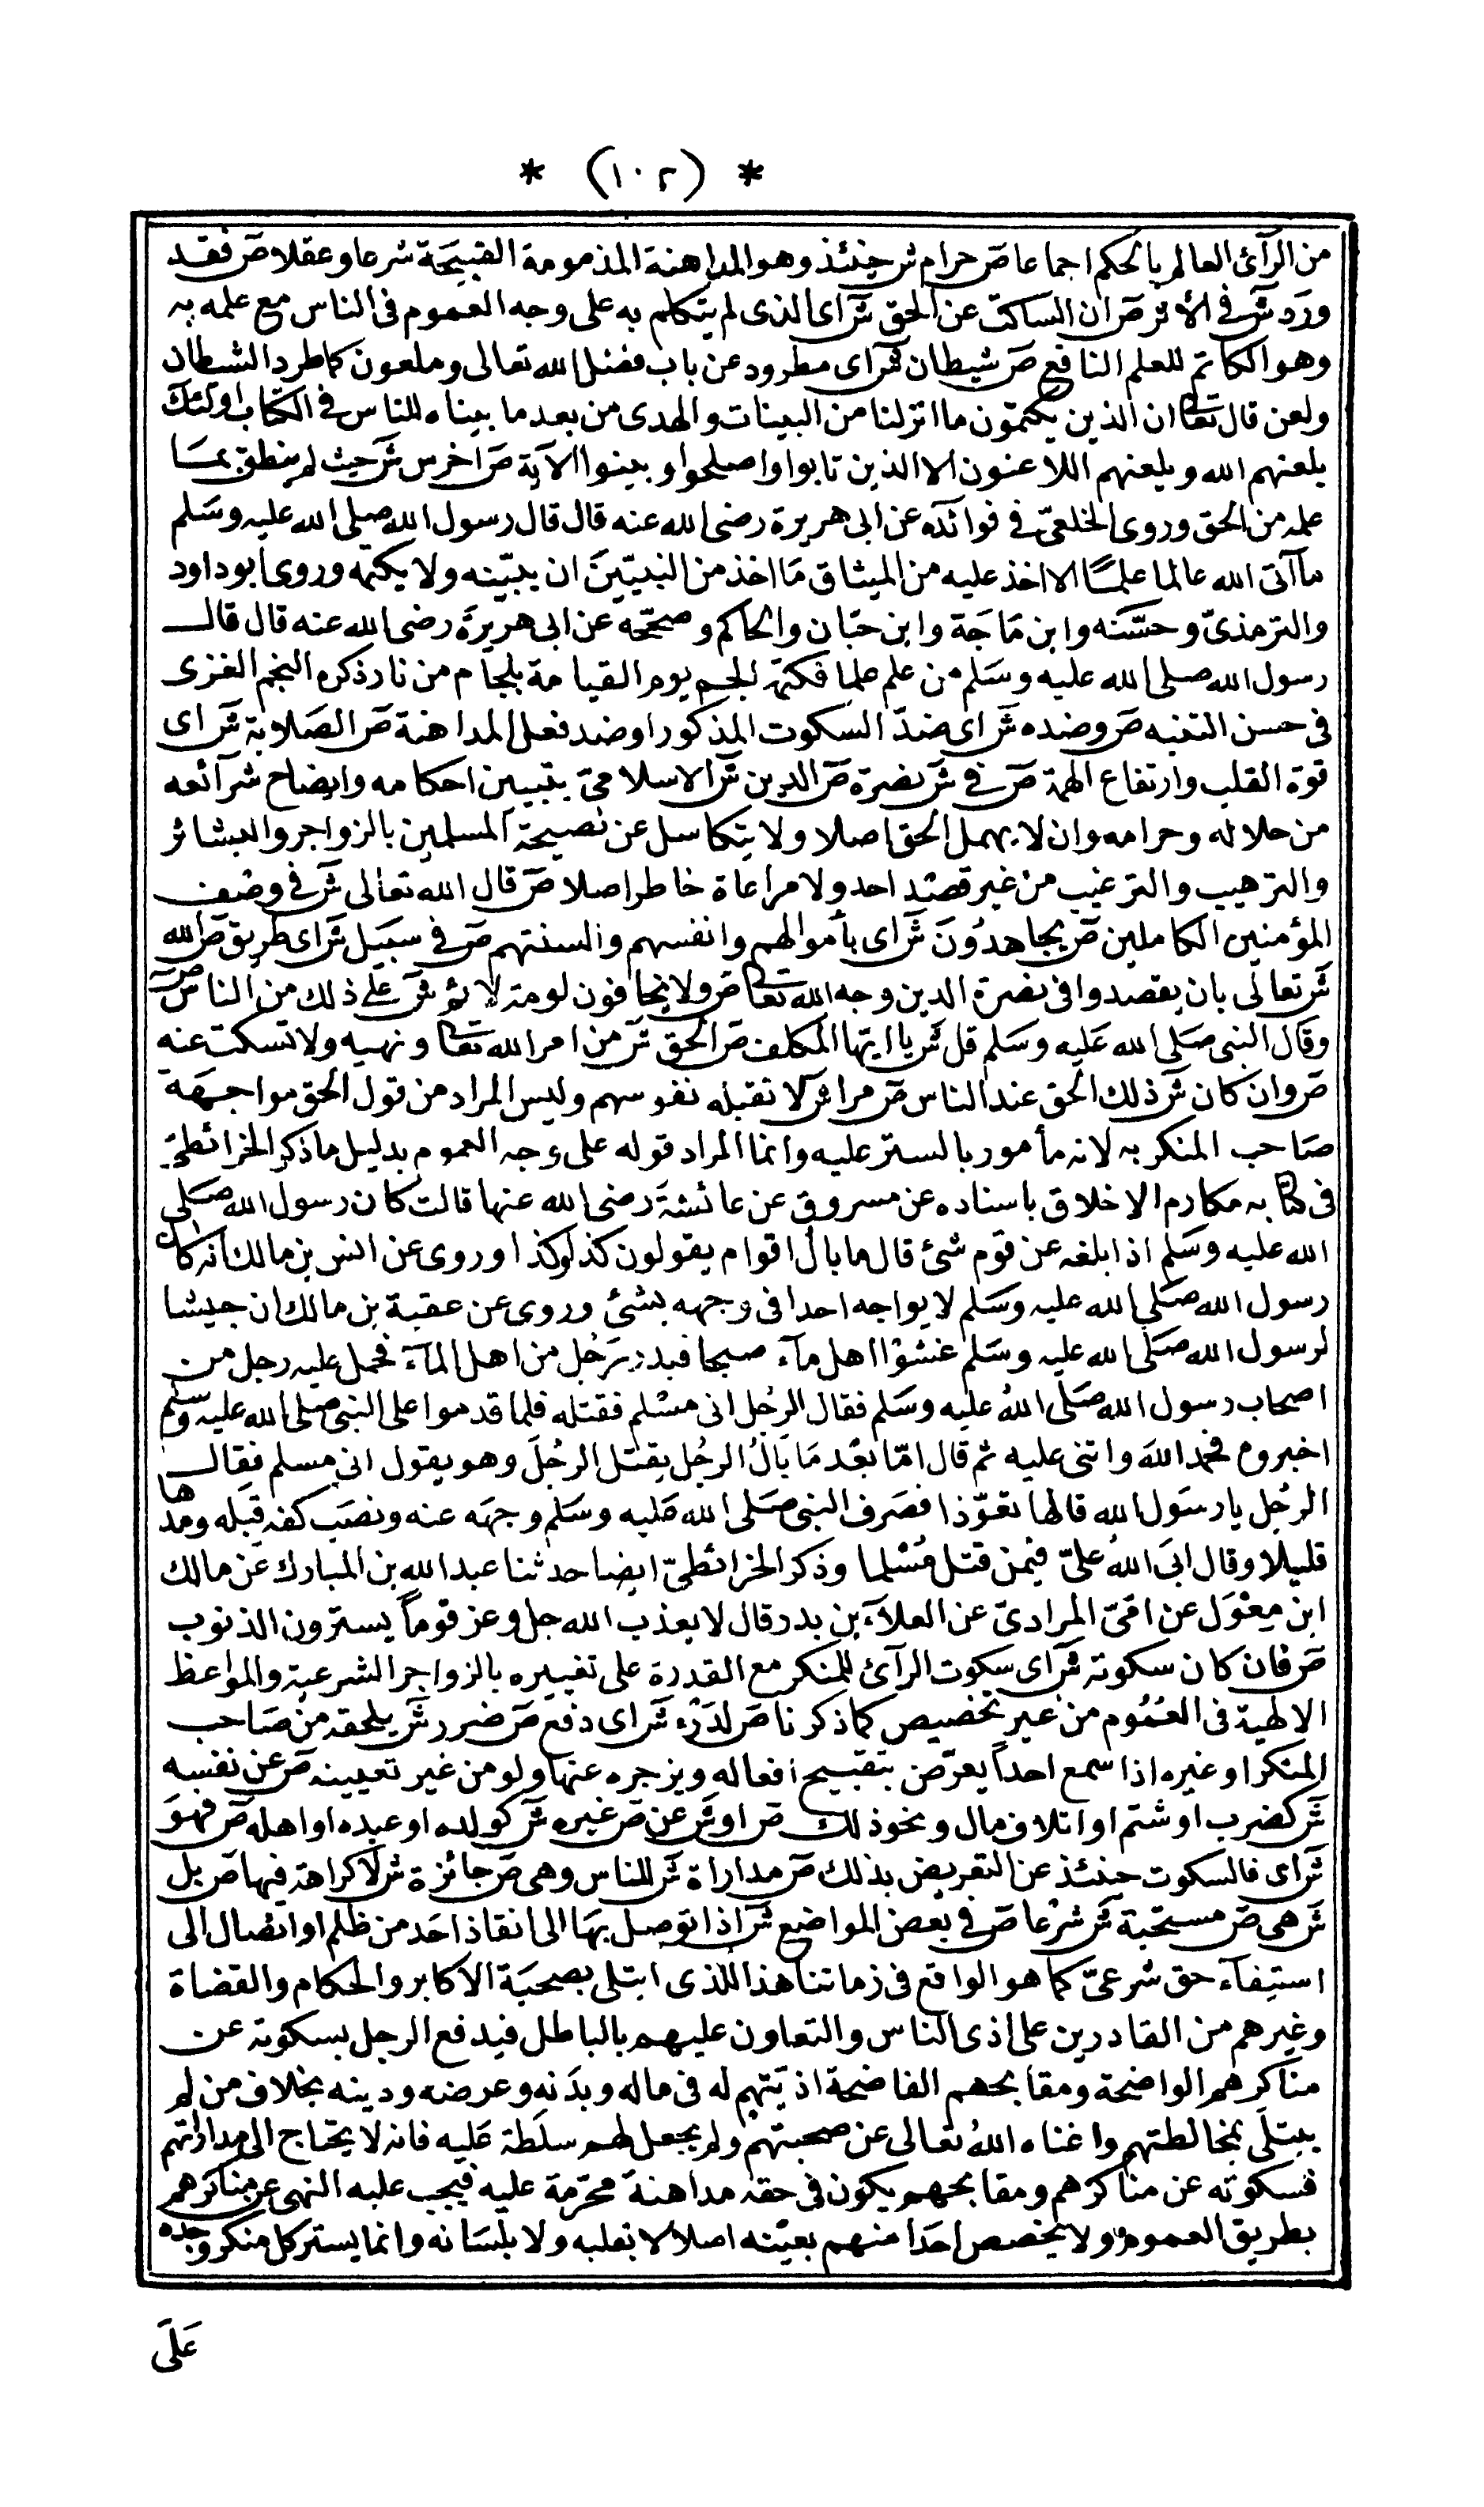 * (١٠٢) *
من الرآئ العالم بالحكم اجماعا صَ حرام ش حينئذ وهو المداهنة المذمومة القبيحة شرعا وعقلا صَ فقد
ورد شَ فى الأثر صَ ان الساكت عن الحق شَ اى الذى لم يتكلم به على وجه العموم فى الناس مع علمه به
وهو الكاتم للعلم النافع صَ شيطان شَ اى مطرود عن باب فضل الله تعالى وملعون كما طرد الشيطان
ولعن قال تعا ان الذين يكتمون ما انزلنا من البينات والهدى من بعد ما بيناه للناس فى الكتاب اولئك
يلعنهم الله ويلعنهم اللاعنون الا الذين تابوا واصلحوا وبينوا الآية صَ اخرس شَ حيث لم ينطق بما
علمه من الحق وروى الخلعىّ فى فوائده عن ابى هريرة رضى الله عنه قال قال رسول الله صلى الله عليه وسلم
ما آتى الله عالما علمًا الا اخذ عليه من الميثاق مَا اخذ من النبيّينَ ان يبيّنه ولا يكتمه وروى ابو داود
والترمذىّ وحسّنه وابن مَاجَة وابن حبّان والحاكم وصحّحه عن ابى هريرَة رضى الله عنه قال قال
رسول الله صلى الله عليه وسَلم من علم علما فكتمه الجم يوم القيامة بلجام من نار ذكره النجم الغزى
فى حسن التنبه صَ وضده شَ اى ضدّ السكوت المذكور او ضد فعل المداهنة صَ الصَلابة شَ اى
قوة القلب وارتفاع الهمة صَ فى شَ نصرة صَ الدين شَ الاسلامىّ بتبيين احكامه وايضاح شرآئعه
من حلاله وحرامه وان لا يهمل الحق اصلا ولا يتكاسل عن نصيحة المسلمين بالزواجر والبشائر
والترهيب والترغيب من غير قصد احد ولا مراعاة خاطر اصلا صَ قال الله تعالى شَ فى وصف
المؤمنين الكاملين صَ يجاهدُونَ شَ اى بأموالهم وانفسهم والسنتهم صَ فى سبيَل شَ اى طريق صَ الله
شَ تعالى بان يقصدوا فى نصرة الدين وجه الله تعا صَ ولا يخافون لومة لائم شَ على ذلك من الناس صَ
وقال النبى صَلى الله عَليه وسَلم قل شَ يا ايها المكلف صَ الحق شَ من امر الله تعا ونهيه ولا تسكت عنه
صَ وان كان شَ ذلك الحق عند الناس صَ مرا شَ لا تقبله نفوسهم وليس المراد من قول الحق مواجهَة
صَاحب المنكر به لانه مأمور بالستر عليه وانما المراد قوله على وجه العموم بدليل ما ذكر الخرائطىّ
فى كتابه مكارم الاخلاق باسناده عن مسروق عن عائشةَ رضى الله عنها قالت كان رسول الله صَلى
الله عليه وسَلم اذا بلغه عن قوم شئ قال ما بال اقوام يقولون كذا وكذا وروى عن انس بن مالك انه كان
رسول الله صَلى الله عليه وسَلم لا يواجه احدا فى وجهه بشئ وروى عن عقبة بن مالك ان جيشا
لرسول الله صَلى الله عليه وسَلم غشوْا اهل مآء صبحا فبدر رَجُل من اهل المآء فحمل عليه رجل من
اصحاب رسول الله صَلى اللهُ عليه وسَلم فقال الرجُل انى مسْلم فقتله فلما قدموا على النبى صلى الله عليه وسلم
اخبروه فحمد اللهَ واثنى عليه ثم قال امّا بعْد مَا بَالُ الرجُل يقتل الرجُلَ وهو يقول انى مسلم فقال
الرجُل يا رسَول الله قالها تعوّذا فصَرف النبى صَلى الله عَليه وسَلم وجهَه عنه ونصَب كفه قبله ومدها
قليلا وقال ابىَ اللهُ علىّ فيمن قتل مُسْلما وذكر الخرائطىّ ايضا حدثنا عبد الله بن المبارك عَن مالك
ابن مِغْوَل عن افىّ المرادىّ عن العلآء بن بدر قال لا يعذب الله جل وعز قوماً يسترون الذنوب
صَ فان كان سكوته شَ اى سكوت الرآئ للمنكر مع القدرة على تغييره بالزواجر الشرعية والمواعظ
الالهية فى العُمُوم من غير تخصيص كما ذكرنا صَ لدَرْء شَ اى دفع صَ ضرر شَ يلحقه من صَاحب
المنكر او غيره اذا سمع احداً يعرّض بتقبيح افعاله ويزجره عنها ولو من غير تعيينه صَ عن نفسه
شَ كضرب او شتم او اتلاف مال ونحو ذلك صَ او شَ عن صَ غيره شَ كولده او عبده او اهله صَ فهوَ
شَ اى فالسكوت حينئذ عن التعريض بذلك صَ مداراة شَ للناس وهى صَ جائزة شَ لا كراهة فيها صَ بل
شَ هى صَ مستحبة شَ شرْعا صَ فى بعض المواضع شَ اذا توصل بهَا الى انقاذ احَد من ظلم او ايصال الى
استيفآء حق شرعىّ كما هو الواقع فى زماننا هذا للذى ابتلى بصحبَة الاكابر والحكام والقضاة
وغيرهم من القادرين على اذى الناس والتعاون عليهم بالباطل فيدفع الرجل بسكوته عن
مناكرهم الواضحة ومقابحهم الفاضحة اذيتهم له فى ماله وبدَنه وعرضه ودينه بخلاف من لم
يبتلَى بمخالطتهم واغناه اللهُ تعالى عن صحبتهمْ ولم يجعل لهم سلطة عَليه فانه لا يحتاج الى مداراتهم
فسكوته عن مناكرهم ومقابحهم يكون فى حقه مداهنةً محرّمة عليه فيجب عليه النهى عن مناكرهم
بطريق العموم ولا يخصص احَدا منهم بعيْنه اصلا لا بقلبه ولا بلسَانه وانما يستر كل منكر وجده
عَلَى